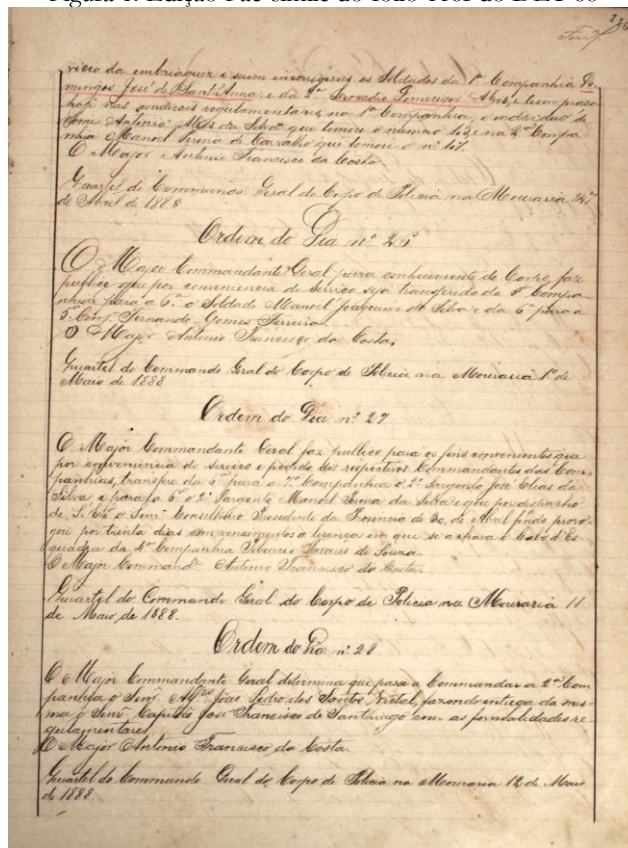 vicio da embriaguez e serem incorrigiveis os Soldados da 1ª Companhia Do
mingos José de Sant'Anna, e da 2ª Alves, e teem praça
hoje nas condicções regulamentares, na 1ª Companhia, o individuo de
nome Antonio Alves da Silva que tomou o numero e na 2ª Compa
nhia Manoel Pereira de Carvalho que tomou o nº 47.
O Major Antonio Francisco da Costa.
Quartel do Commando Geral do Corpo de Policia na Mouraria
de Abril de 1888
Ordem do Dia nº 26
O Major Commandante Geral para conhecimento do Corpo, faz
publico que por conveniencia do serviço seja transferido da Compa
nhia para a 6ª o Soldado Manoel Joaquim da Silva e da 6ª para a
5ª Comp. Fernando Gomes Ferreira.
O Major Antonio Francisco da Costa.
Quartel do Commando Geral do Corpo de Policia na Mouraria 1º de
Maio de 1888
Ordem do Dia nº 27
O Major Commandante Geral faz publico para os fins convenientes que
por conveniencia do serviço e pedido dos respectivos Commandantes das Com
panhias, transfere da 5ª para a 7ª Companhia o 2º Sargento José Elias da
Silva e para a 6ª o 2º Sargento Manoel da Silva e que por despacho
de S. Exª o Senr. Conselheiro Presidente da Provincia de 30 de Abril findo proro-
gou por trinta dias com vencimentos a licença em que se achava o Cabo d'Es
quadra da 4ª Companhia Tiburcio de Souza.
O Major Commande. Antonio Francisco da Costa.
Quartel do Commando Geral do Corpo de Policia na Mouraria 11
de Maio de 1888.
Ordem do Dia nº 28
O Major Commandante Geral determina que passe a Commandar a 2ª Com
panhia o Senr. João Pedro dos Santos Vital, fazendo entrega da mes-
ma o Senr. Capitão José Francisco de Santhiago com as formalidades re-
gulamentares.
O Major Antonio Francisco da Costa.
Quartel do Commando Geral do Corpo de Policia na Mouraria 12 de Maio
de 1888.